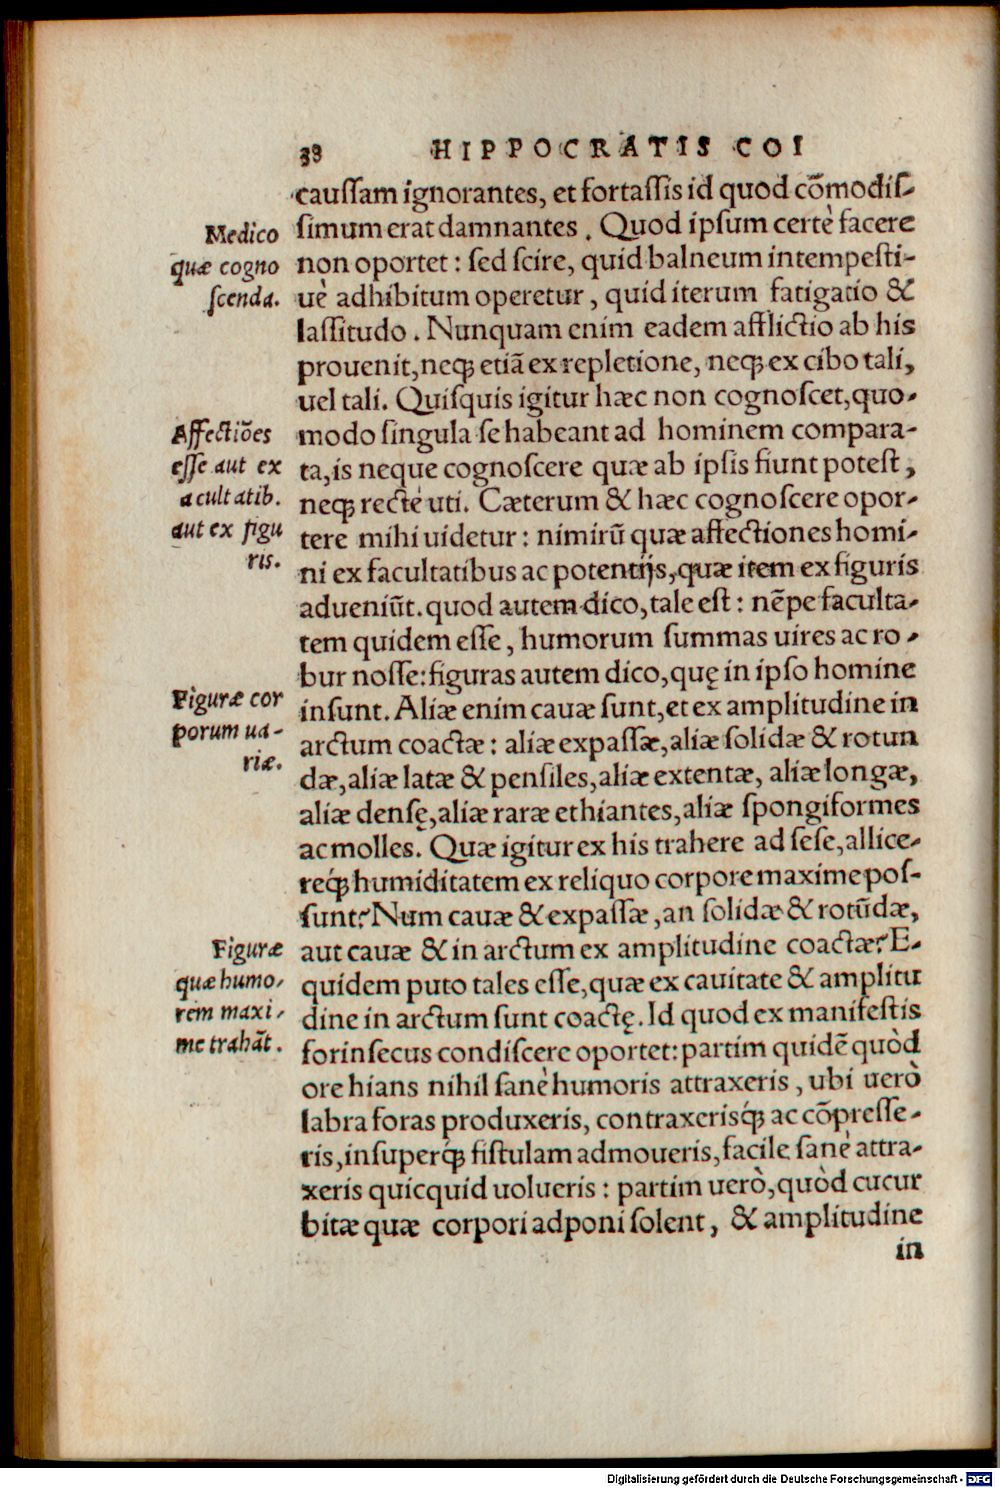 38 HIPPOCRATIS COI
cauſſam ignorantes, et fortaſſis id quod cõmodiſ-
ſimum erat damnantes. Quod ipſum certè facere
non oportet: ſed ſcire, quid balneum intempeſti-
uè adhibitum operetur, quid iterum fatigatio &
laſſitudo. Nunquam enim eadem afflictio ab his
prouenit, neq́ꝫ etiã ex repletione, neq́ꝫ ex cibo tali,
uel tali. Quiſquis igitur hæc non cognoſcet, quo-
modo ſingula ſe habeant ad hominem compara-
ta, is neque cognoſcere quæ ab ipſis fiunt poteſt,
neq́ꝫ rectè uti. Cæterum & hæc cognoſcere opor-
tere mihi uidetur: nimirũ quæ affectiones homi-
ni ex facultatibus ac potentijs, quæ item ex figuris
adueniũt. quod autem dico, tale eſt: nẽpe faculta-
tem quidem eſſe, humorum ſummas uires ac ro-
bur noſſe: figuras autem dico, quę in ipſo homine
inſunt. Aliæ enim cauæ ſunt, et ex amplitudine in
arctum coactæ: aliæ expaſſæ, aliæ ſolidæ & rotun
dæ, aliæ latæ & penſiles, aliæ extentæ, aliæ longæ,
aliæ denſę, aliæ raræ et hiantes, aliæ ſpongiformes
ac molles. Quæ igitur ex his trahere ad ſeſe, allice-
req́ꝫ humiditatem ex reliquo corpore maxime poſ-
ſunt? Num cauæ & expaſſæ, an ſolidæ & rotũdæ,
aut cauæ & in arctum ex amplitudine coactæ? E-
quidem puto tales eſſe, quæ ex cauitate & amplitu
dine in arctum ſunt coactę. Id quod ex manifeſtis
forinſecus condiſcere oportet: partim quidẽ quòd
ore hians nihil ſanè humoris attraxeris, ubi uerò
labra foras produxeris, contraxerisq́ꝫ ac cõpreſſe-
ris, inſuperq́ꝫ fiſtulam admoueris, facile ſanè attra-
xeris quicquid uolueris: partim uerò, quòd cucur
bitæ quæ corpori adponi ſolent, & amplitudine
in
Medico
quæ cogno
ſcenda.
Affectiões
eſſe aut ex
acultatib.
aut ex figu
ris.
Figuræ cor
porum ua-
riæ.
Figuræ
quæ humo-
rem maxi-
me trahãt.
Digitalisierung gefördert durch die Deutsche Forschungsgemeinschaft - DFG